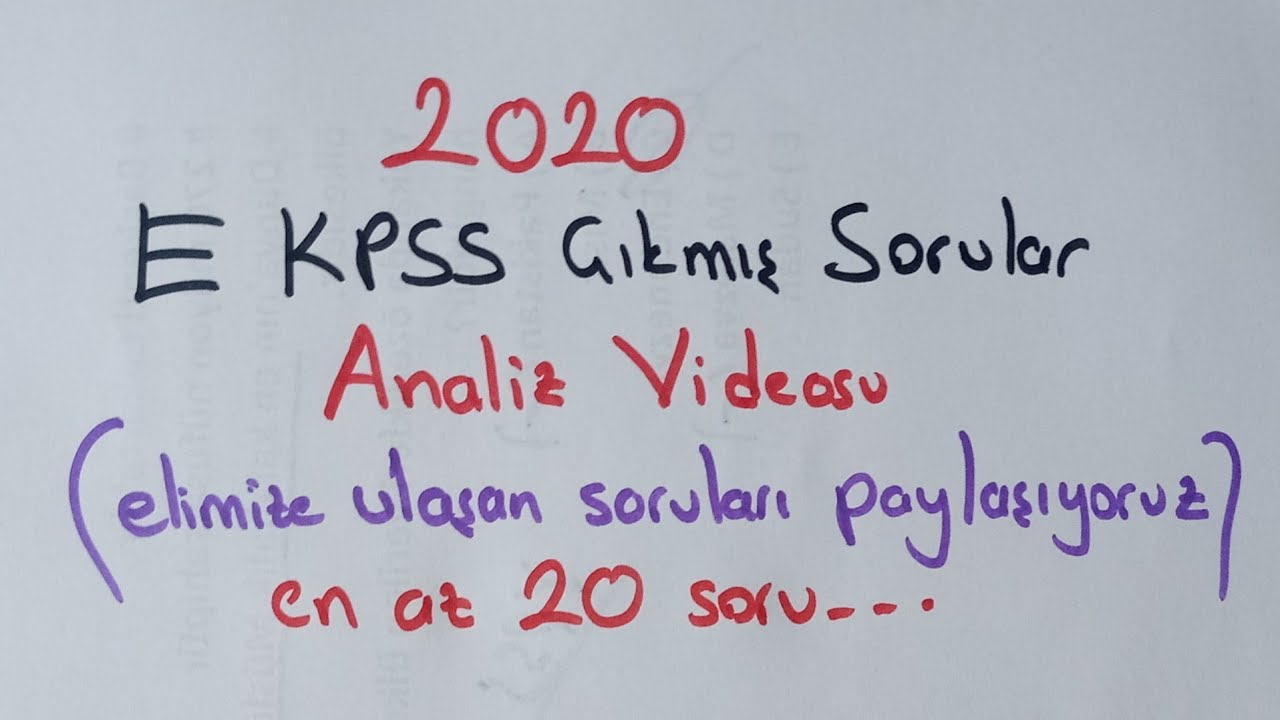 2020
E KPSS Çıkmış Sorular
Analiz Videosu
(elimize ulaşan soruları paylaşıyoruz)
en az 20 soru---.